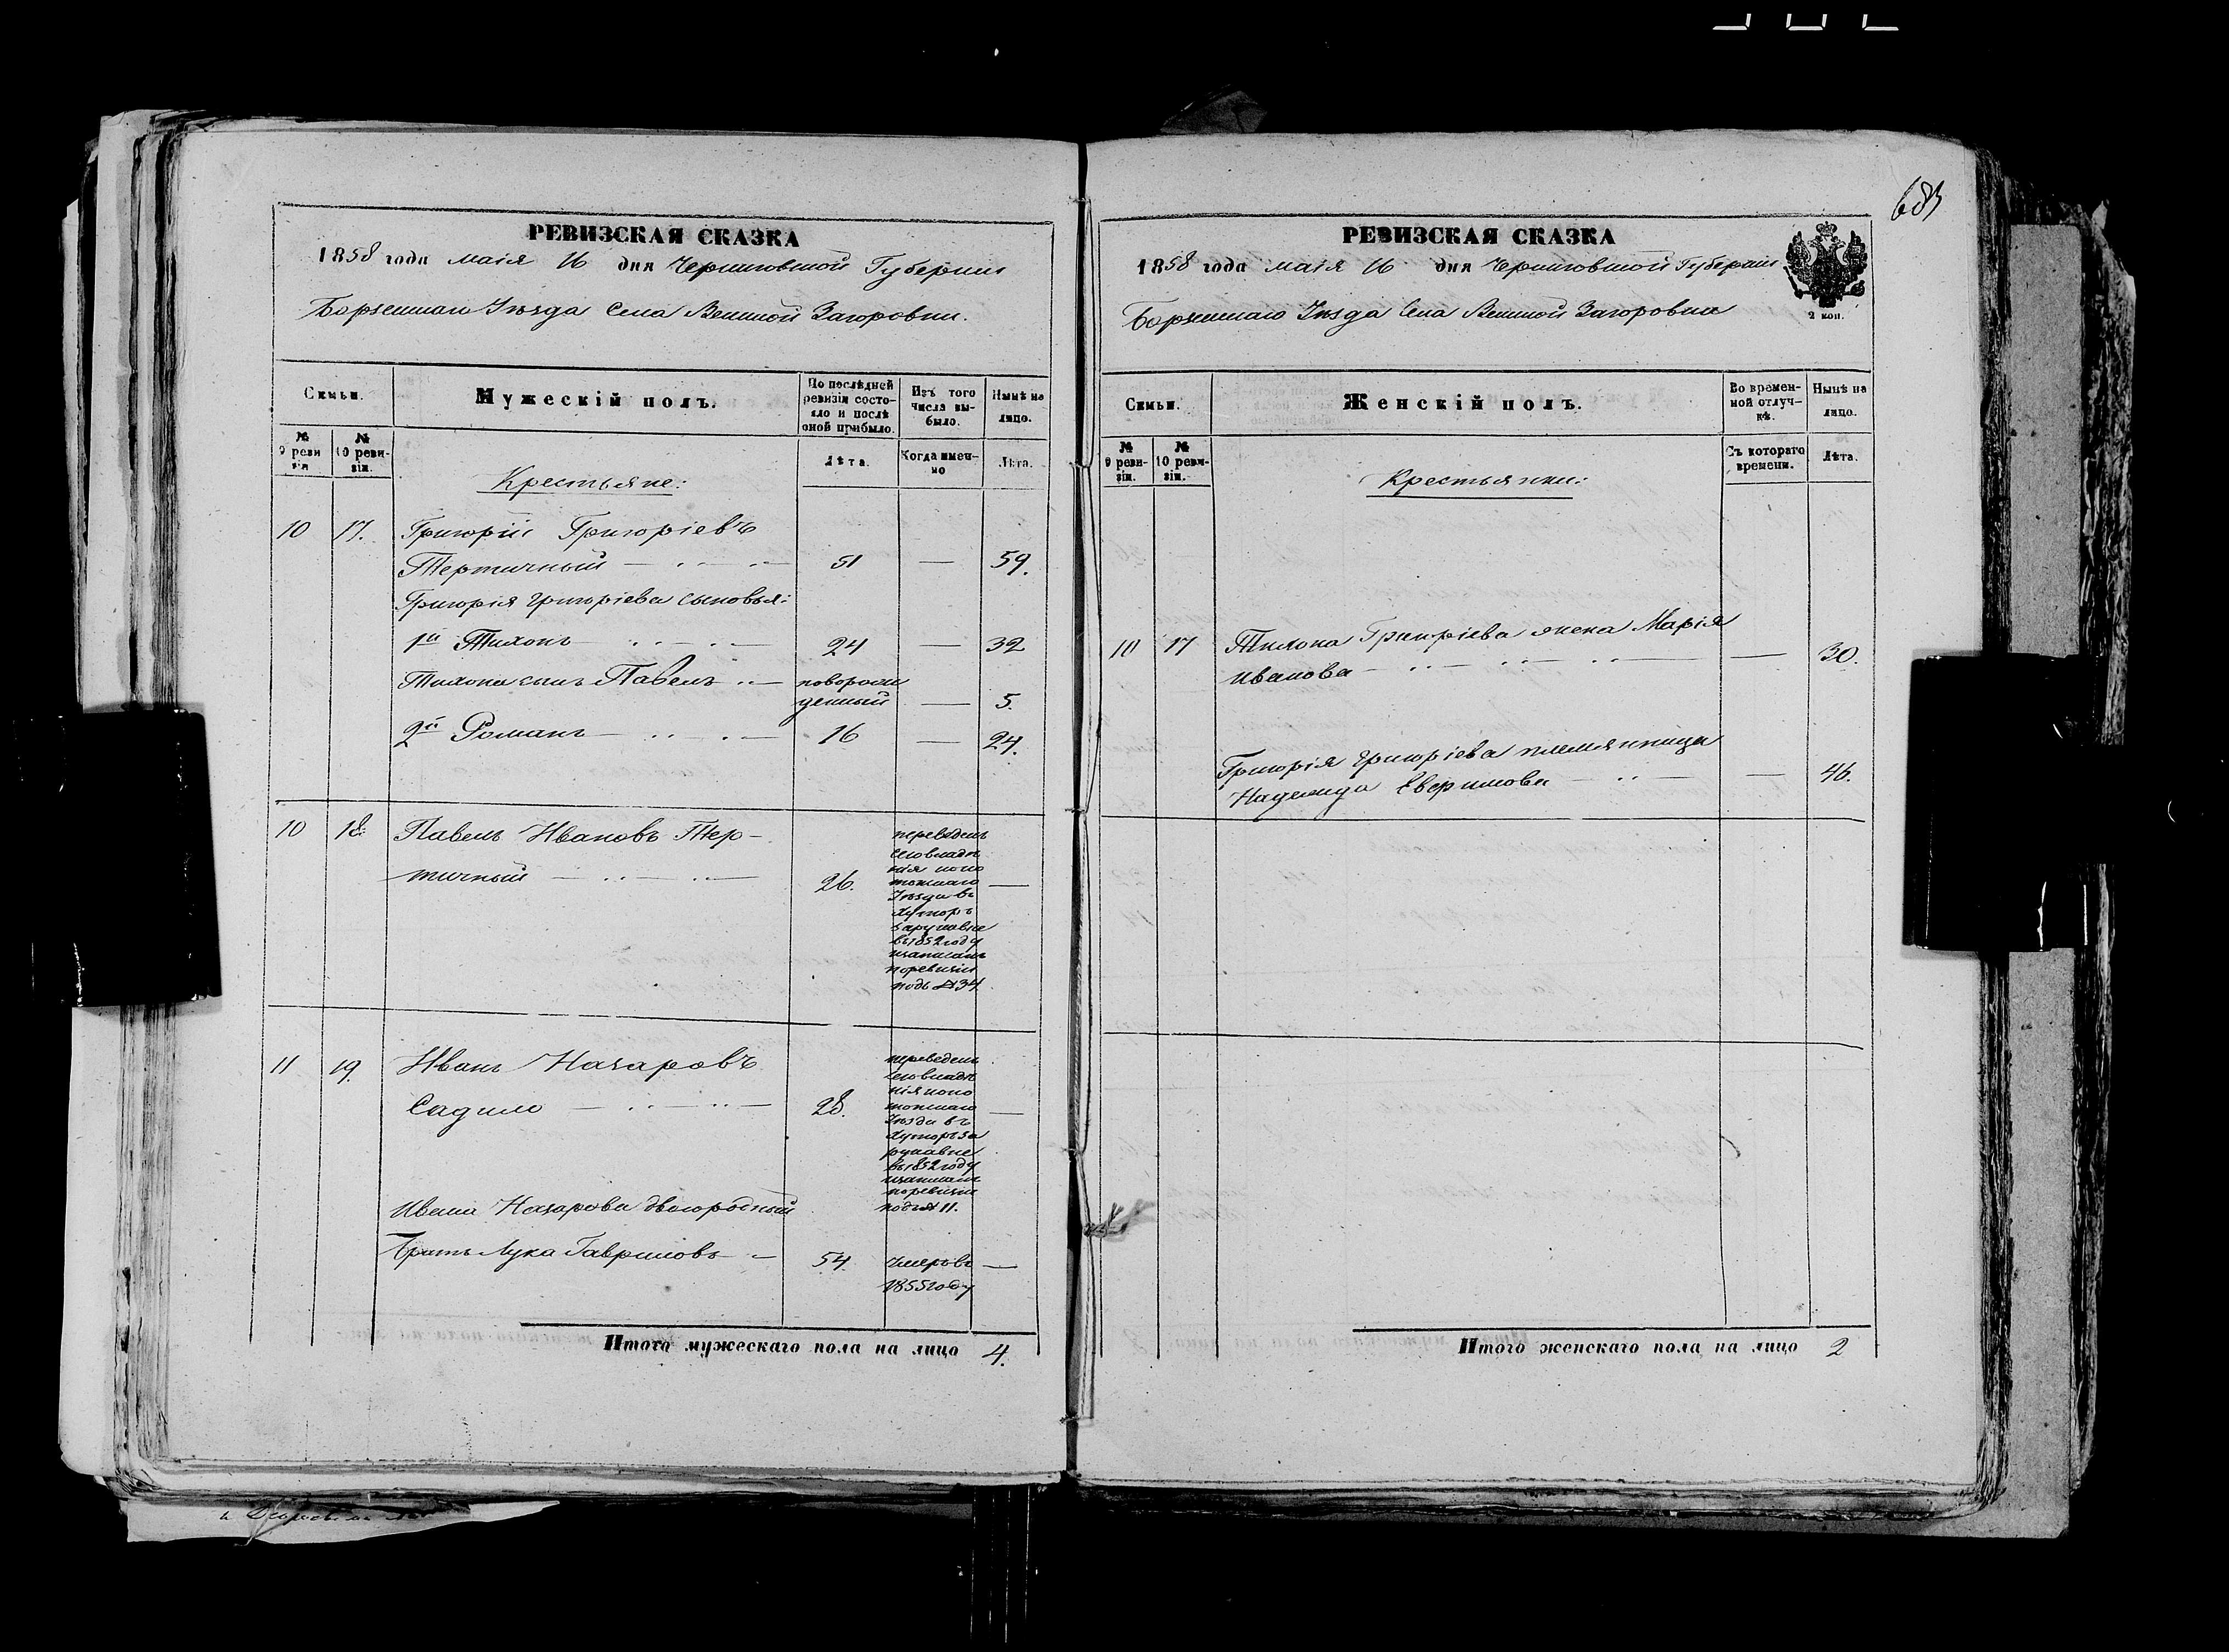 683
РЕВИЗСКАЯ СКАЗКА
1858 года маія 16 дня Черниговской Губерніи
Борзенскаго Уезда Села Великой Загоровки.
Семьи.
Мужескій полъ.
По послѣдней ревизіи состояло и послѣ оной прибыло.
Изъ того числа выбыло.
Нынѣ на лицо.
№ 9 ревизіи
№ 10 ревизіи.
Лѣта.
Когда именно
Лѣта.
Крестьяне:
10 17. Григорій Григоріевъ
Тертичный 51 — 59.
Григорія Григоріева сыновья:
1й Тихонъ 24 — 32
Тихона сынъ Павелъ новорож
денный — 5.
2й Романъ 16 — 24.
10 18. Павелъ Ивановъ Тер-
тичный 26. —
переведенъ
сеговладѣ
нія коно
топскаго
Уезда въ
хуторъ
Зарукавне
въ1852году
изаписанъ
поревизіи
подъ №34.
11 19. Иванъ Назаровъ
Садило 28. —
переведенъ
сеговладѣ
нія коно
топскаго
Уезда въ
хуторъ За
рукавне
въ1852году
изаписанъ
поревизіи
подъ № 11.
Ивана Назарова двоюродный
братъ Лука Гавриловъ 54. Умеръ въ —
1855году
Итого мужескаго пола на лицо 4.
РЕВИЗСКАЯ СКАЗКА
1858 года маія 16 дня Черниговской Губерніи
Борзенскаго Уезда Села Великой Загоровки
2 коп.
Семьи.
Женскій полъ.
Во временной отлучкѣ.
Нынѣ на лицо.
№ 9 ревизіи.
№ 10 ревизіи.
Съ котораго времени.
Лѣта.
Крестьянки:
10 17 Тихона Григоріева жена Марія
Иванова — 30.
Григорія Григоріева племянница
Надежда — 46.
Итого женскаго пола на лицо 2